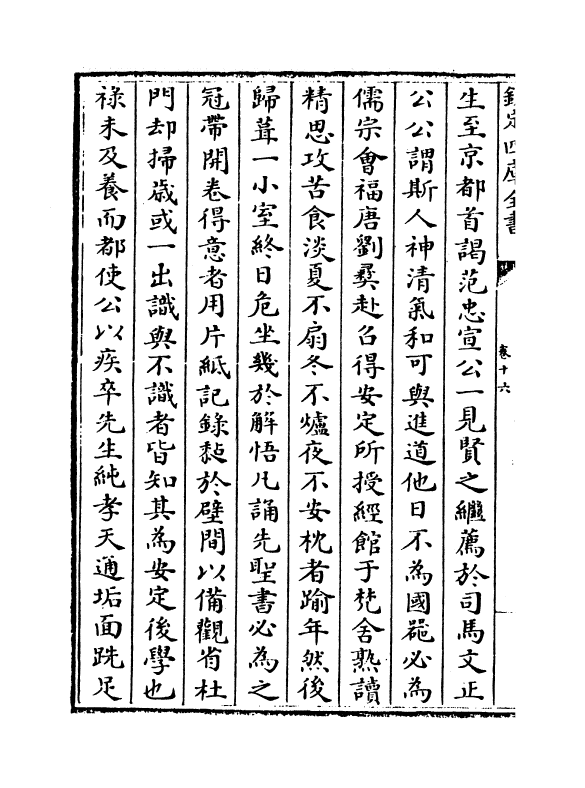 欽定四庫全書
卷十六
生至京都首謁范忠宣公一見賢之繼薦於司馬文正
公公謂斯人神清氣和可與進道他日不為國器必為
儒宗會福唐劉彛赴召得安定所授經館于梵舍熟讀
精思攻苦食淡夏不扇冬不爐夜不安枕者踰年然後
歸葺一小室終日危坐幾於解悟凡誦先聖書必為之
冠帶開卷得意者用片紙記錄黏於壁間以備觀省杜
門却掃歳或一出識與不識者皆知其為安定後學也
祿未及養而都使公以疾卒先生純孝天通垢面跣足